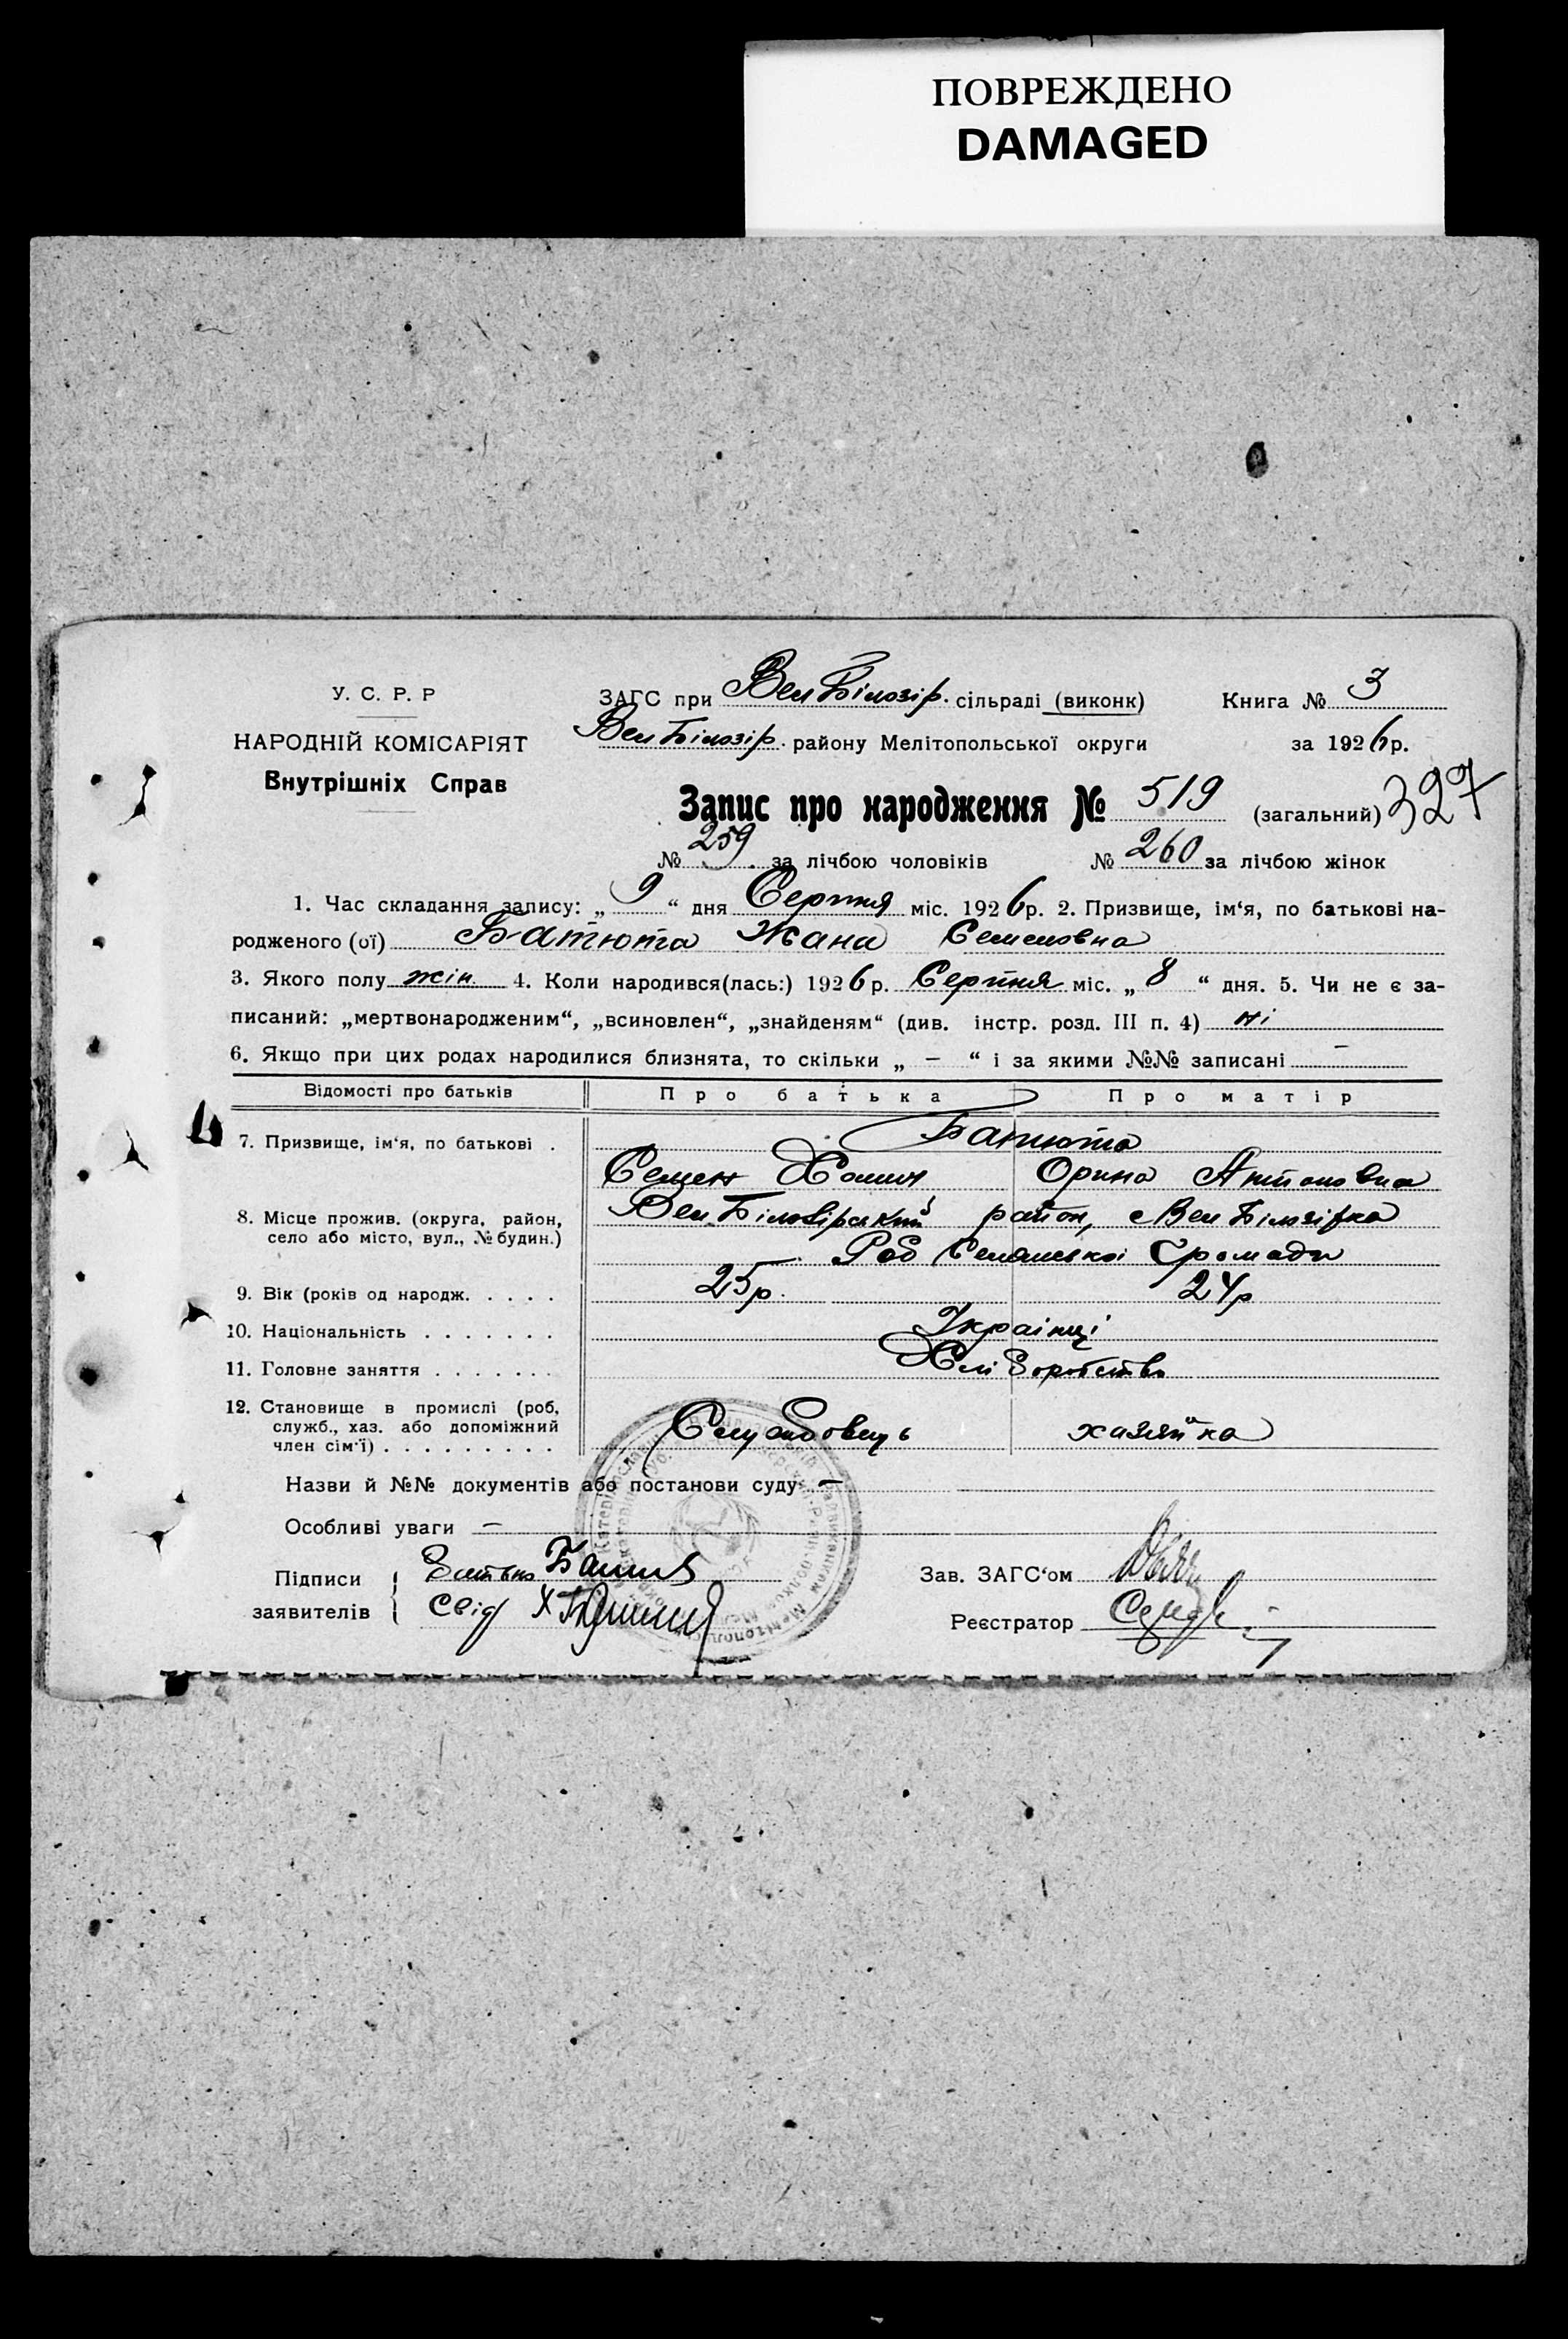 ПОВРЕЖДЕНО
DAMAGED
У. С. Р. Р
НАРОДНІЙ КОМІСАРІЯТ
Внутрішніх Справ
ЗАГС при Вел Білозір. сільраді (виконк)
Книга № 3
Вел Білозір. району Мелітопольської округи
за 1926 р.
Запис про народження № 519 (загальний) 327
№ 259 за лічбою чоловіків № 260 за лічбою жінок
1. Час складання запису: „ 9 “ дня Серпня міс. 1926 р. 2. Призвище, ім‘я, по батькові на-
родженого (ої) Батюта Жана Семеновна
3. Якого полу жін. 4. Коли народився(лась:) 1926 р. Серпня міс. „ 8 “ дня. 5. Чи не є за-
писаний: „мертвонародженим“, „всиновлен“, „знайденям“ (див. інстр. розд. III п. 4) ні
6. Якщо при цих родах народилися близнята, то скільки „ — “ і за якими №№ записані —
Відомості про батьків Про батька Про матір
7. Призвище, ім‘я, по батькові . Батюта
Семен Хомич Орина Антоновна
8. Місце прожив. (округа, район, село або місто, вул., № будин.) Вел Білозірський район, Вел Білозірка
Селянської Громади
9. Вік (років од народж. . . . . 25р. 24р
10. Національність . . . . . . . Українці
11. Головне заняття . . . . . . . Хліборобство
12. Становище в промислі (роб,
служб., хаз. або допоміжний
член сім‘ї) . . . . . . . . . хазяйка
Назви й №№ документів або постанови суду —
Особливі уваги —
Підписи
заявителів
Батько
Свід
Зав. ЗАГС‘ом
Реєстратор